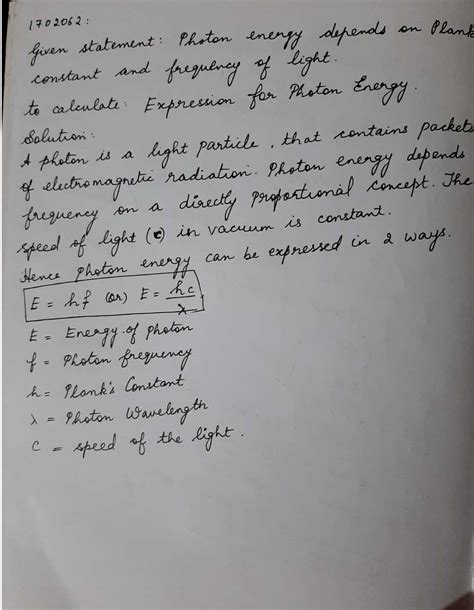 1702062:
Given statement: Photon energy depends on Plank
constant and frequency of light.
to calculate: Expression for Photon Energy.
Solution:
A photon is a light particle, that contains packets
of electromagnetic radiation. Photon energy depends
frequency on a directly proportional concept. The
speed of light (c) in vacuum is constant.
Hence photon energy can be expressed in 2 ways.
E = hf (or) E = hc/λ
E = Energy of photon
f = Photon frequency
h = Plank's Constant
λ = Photon Wavelength
C = speed of the light.